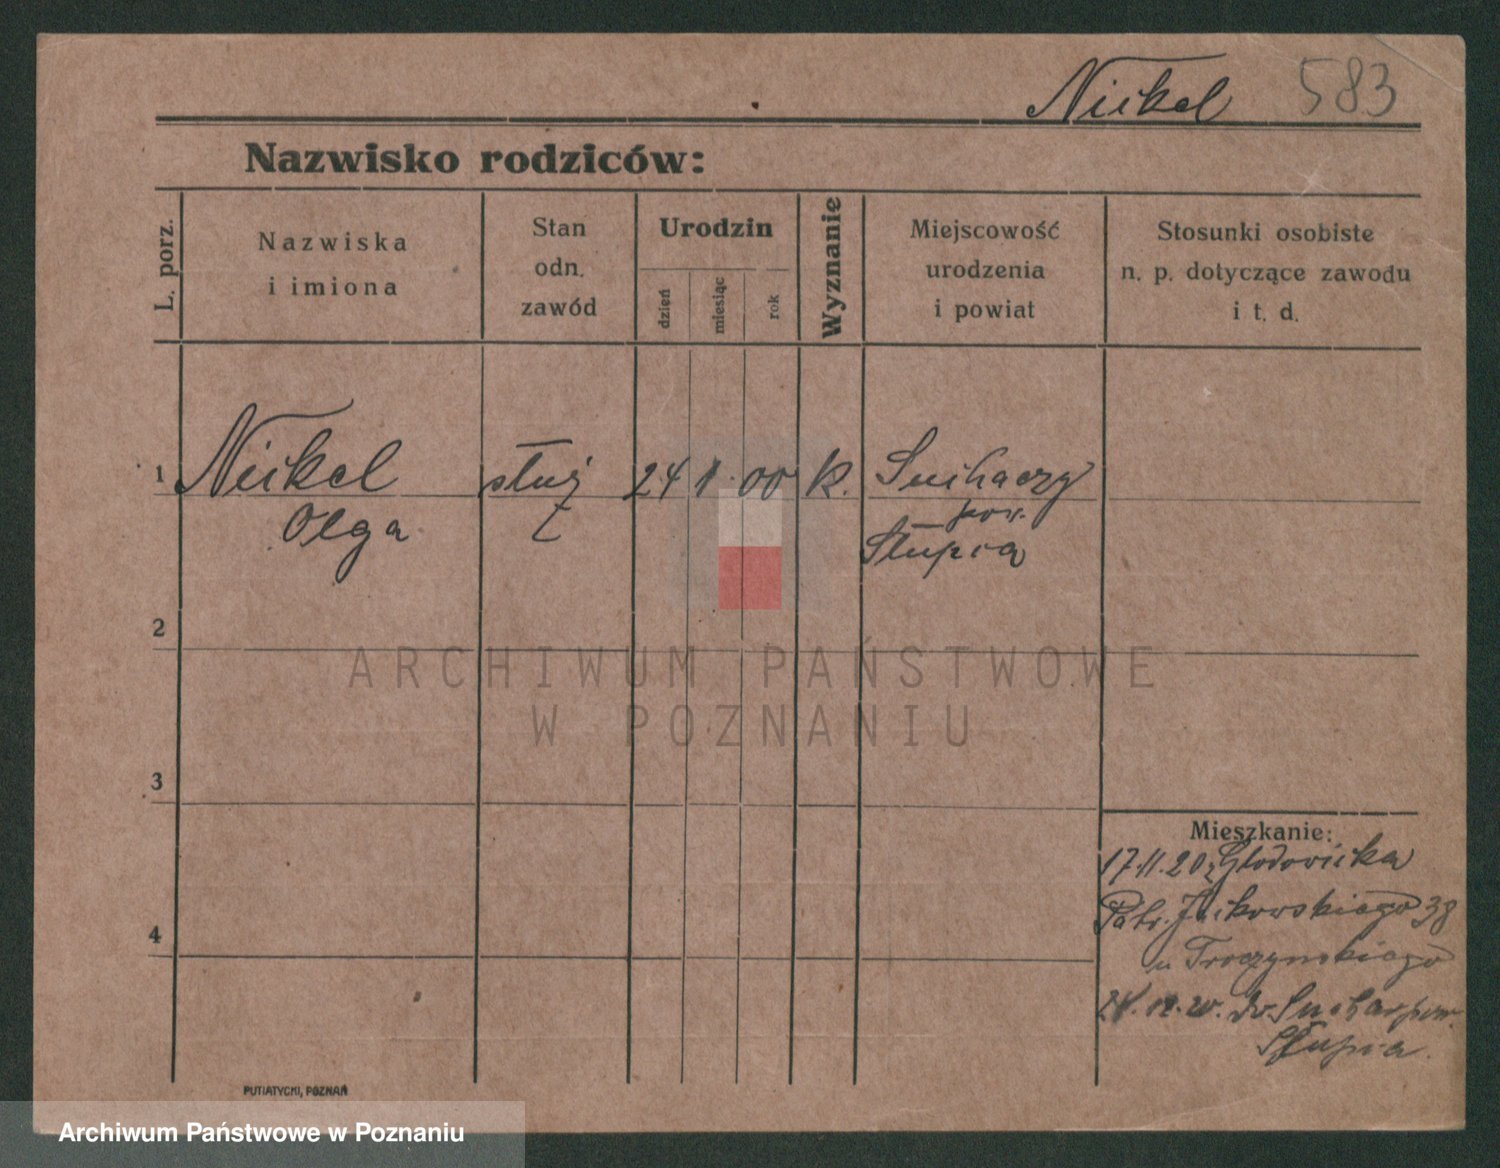 Nickel 583
Nazwisko rodziców:
L. porz.
Nazwiska
i imiona
Stan
odn.
zawód
Urodzin
dzień
miesiąc
rok
Wyznanie
Miejscowość
urodzenia
i powiat
Stosunki osobiste
n. p. dotyczące zawodu
i t. d.
1 Nickel służ 24 1 00 k. Suchaczy
pow.
Olga Słupia
2
3
4
Mieszkanie:
17.11.20 z Głodowicka
Patr. Jackowskiego 38
u Troczynskiego
24.12.20. do
Słupia.
PUTIATYCKI, POZNAŃ
ARCHIWUM PAŃSTWOWE
W POZNANIU
Archiwum Państwowe w Poznaniu